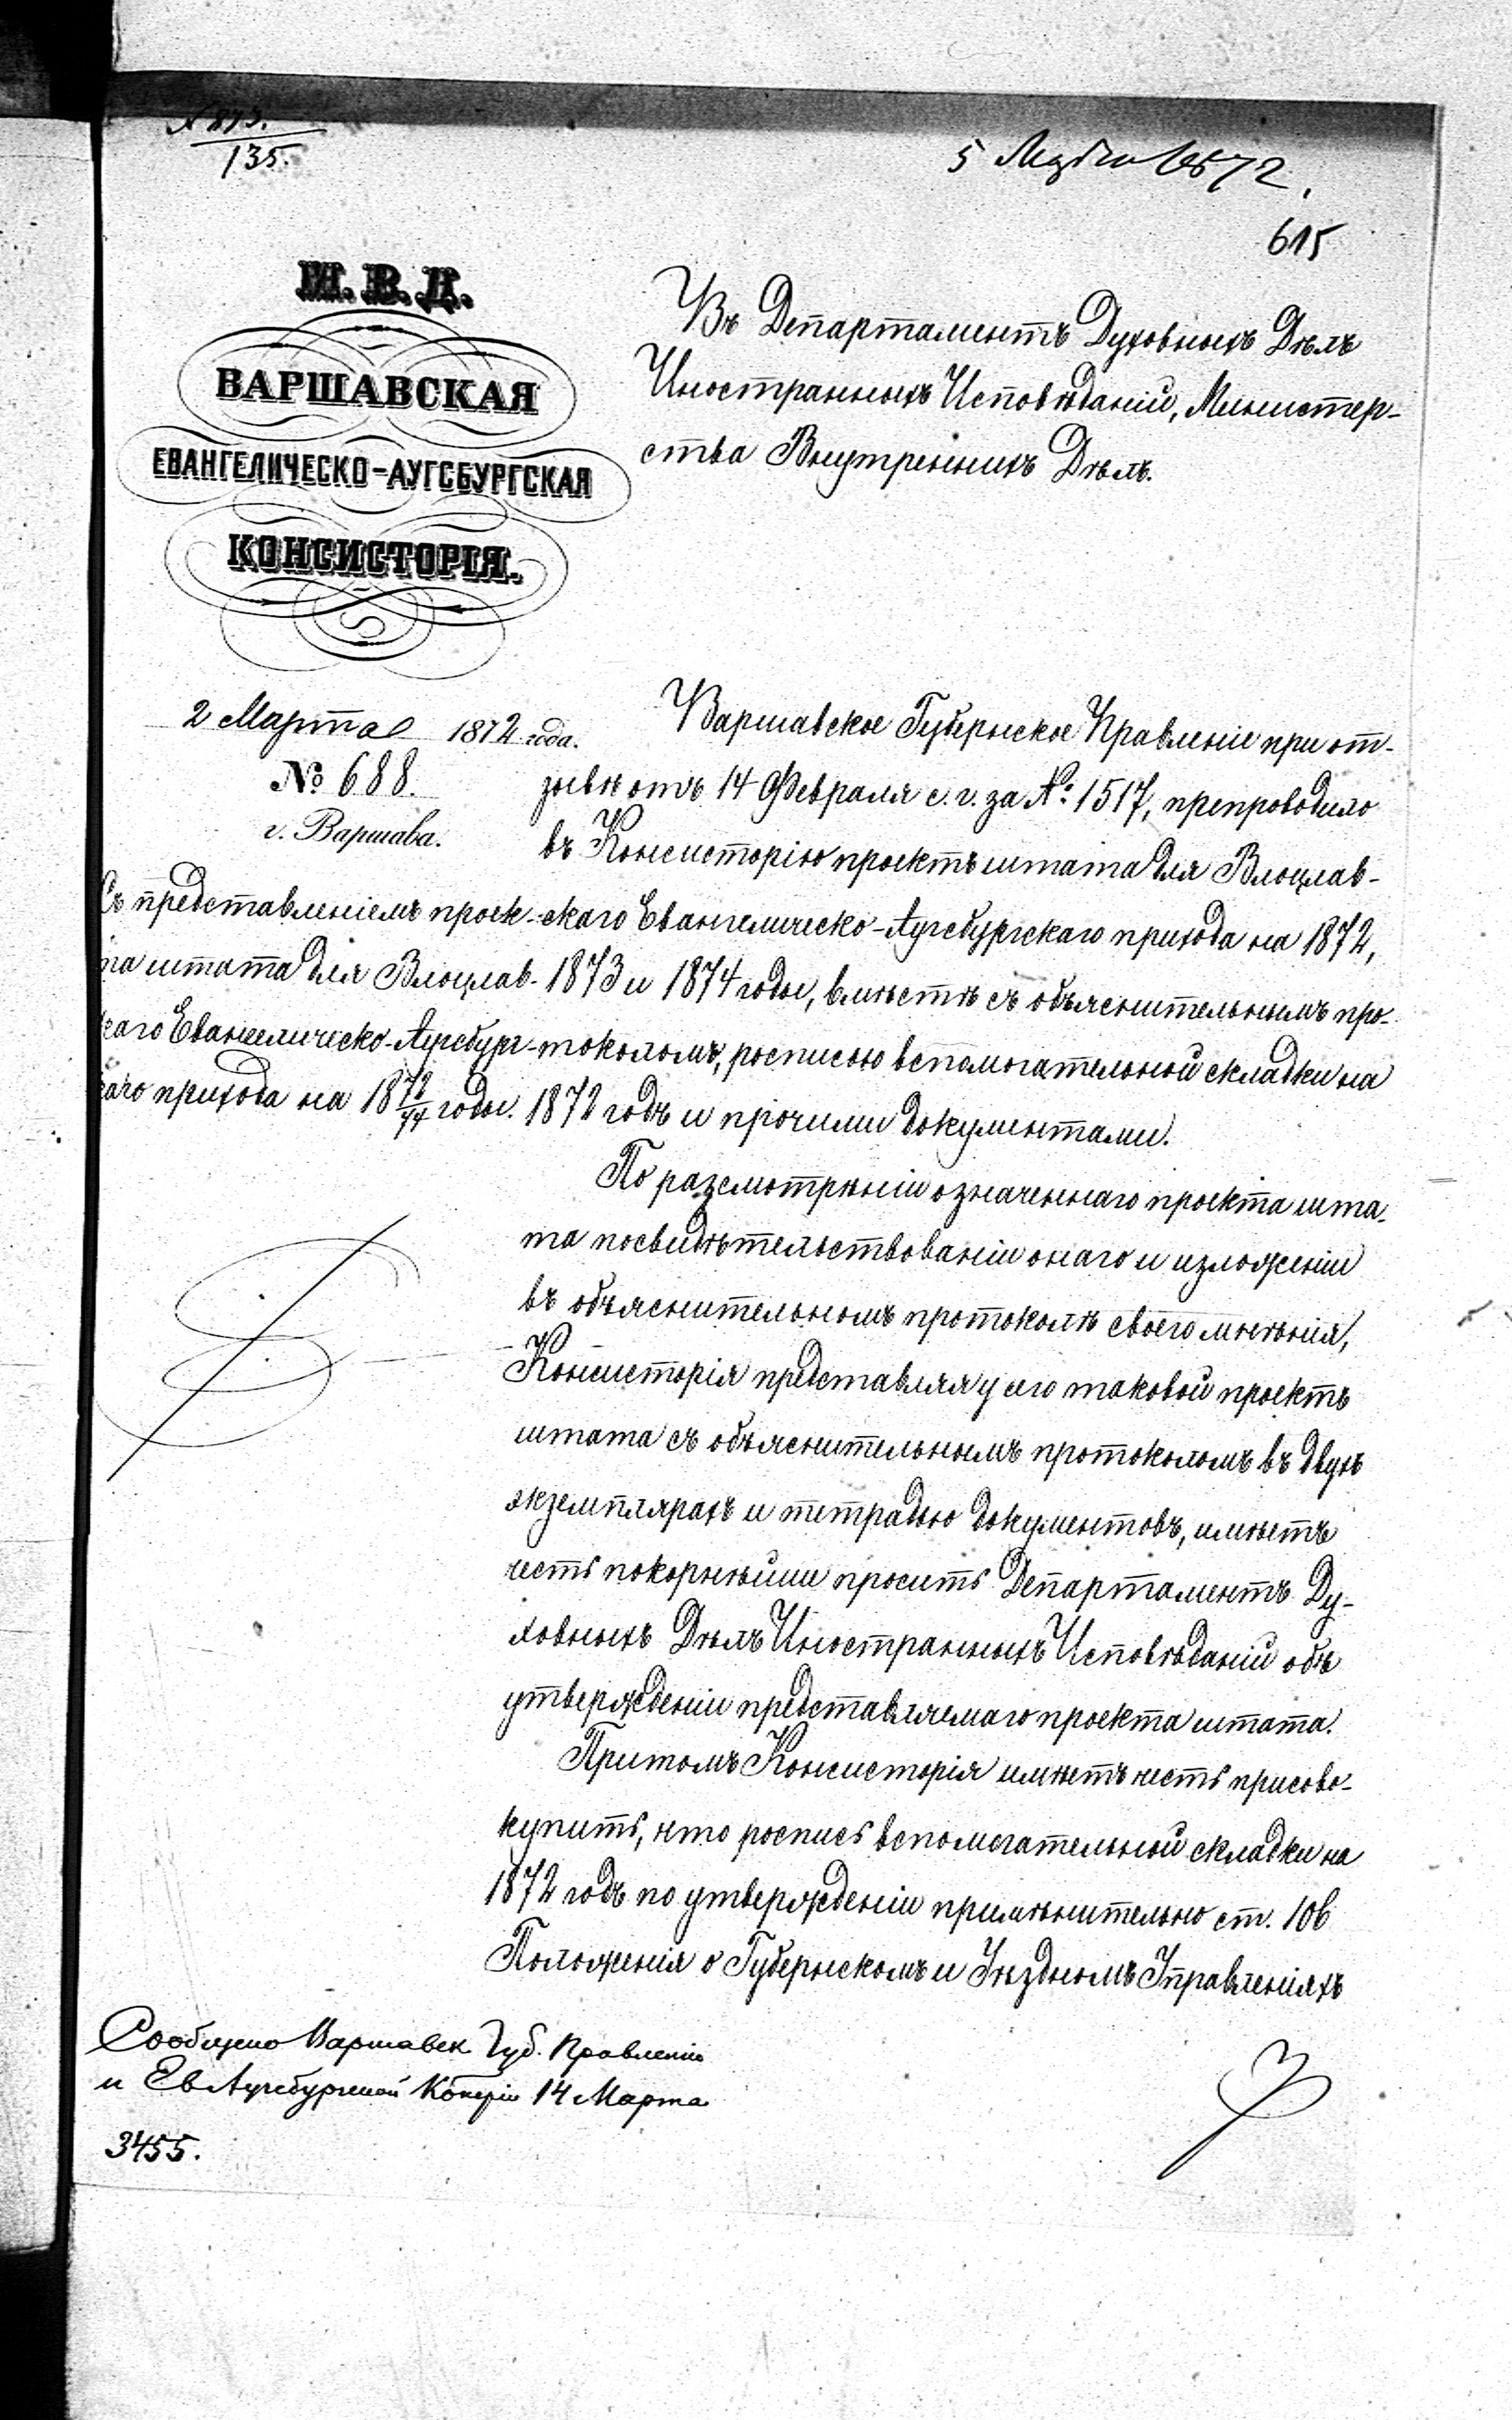 135.
5 Марта 1872.
615
М.В.Д.
ВАРШАВСКАЯ
ЕВАНГЕЛИЧЕСКО-АУГСБУРГСКАЯ
КОНСИСТОРІЯ.
2 Марта 1872 года.
№ 688.
г. Варшава.
Съ представленіемъ проек-
та штата для Влоцлав-
скаго Евангелическо-Аугсбург-
скаго прихода на 1872/74 годы.
Въ Департаментъ Духовныхъ Дѣлъ
Иностранныхъ Исповѣданій, Министер-
ства Внутреннихъ Дѣлъ.
Варшавское Губернское Правленіе при от-
зывѣ отъ 14 Февраля с. г. за №: 1517, препроводило
въ Консисторію проектъ штата для Влоцлав-
скаго Евангелическо-Аугсбургскаго прихода на 1872,
1873 и 1874 годы, вмѣстѣ съ объяснительнымъ про-
токоломъ, росписью вспомогательной складки на
1872 годъ и прочими документами.
По разсмотрѣніи означеннаго проекта шта-
та посвидѣтельствованіи онаго и изложеніи
въ объяснительномъ протоколѣ своего мнѣнія,
Консисторія представляя у сего таковой проектъ
штата съ объяснительнымъ протоколомъ въ двухъ
экземплярахъ и тетрадью документовъ, имѣетъ
честь покорнѣйше просить Департаментъ Ду-
ховныхъ Дѣлъ Иностранныхъ Исповѣданій объ
утвержденіи представляемаго проекта штата.
Притомъ Консисторія имѣетъ честь присово-
купить, что роспись вспомогательной складки на
1872 годъ по утвержденіи примѣнительно ст. 106
Положенія о Губернскомъ и Уѣздномъ Управленіяхъ
Сообщено Варшавск. Губ. Правленію
и Ев Аугсбургской Конс-ріи 14 Марта
3455.